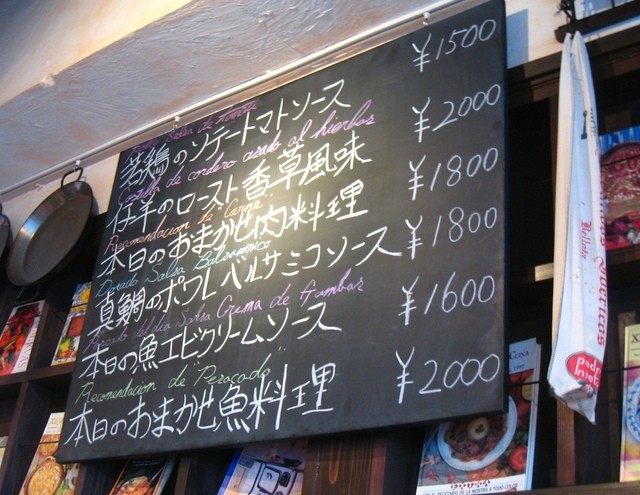 Salsa de tomate
若鶏のソテートマトソース ¥1500
Costilla de cordero asado al hierbas
仔羊のロースト香草風味 ¥2000
Recomendacion de "Carne"
本日のおまかせ肉料理 ¥1800
Dorado Salsa Balsamico
真鯛のポワレバルサミコソース ¥1800
Pescado del dia Salsa Crema de Gambas
本日の魚エビクリームソース ¥1600
Recomendacion de "Pescado"
本日のおまかせ魚料理 ¥2000